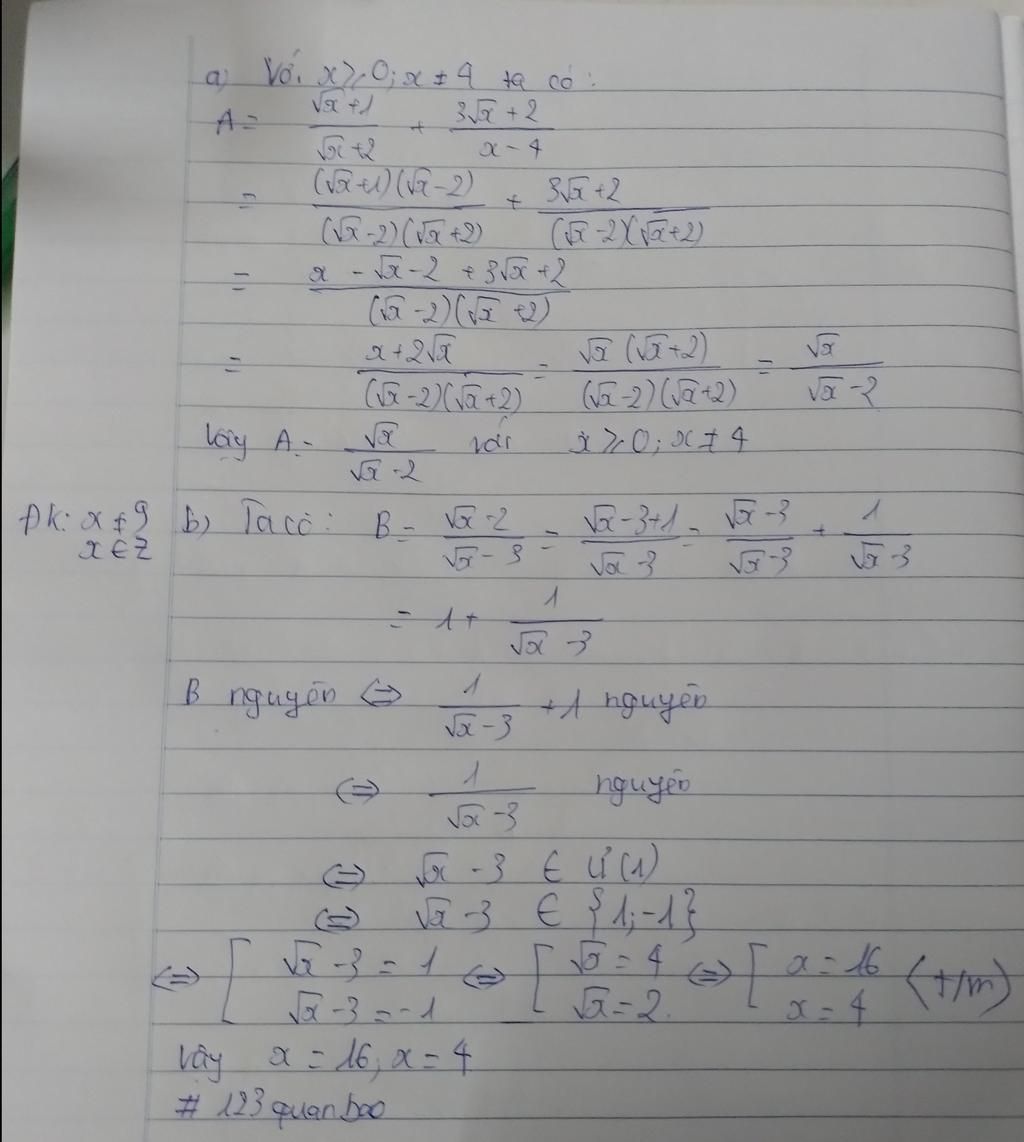 a) Với x ≥ 0; x ≠ 4 ta có:
A = (√x+1)/(√x+2) + (3√x+2)/(x-4)
= ((√x+1)(√x-2))/((√x-2)(√x+2)) + (3√x+2)/((√x-2)(√x+2))
= (x-√x-2+3√x+2)/((√x-2)(√x+2))
= (x+2√x)/((√x-2)(√x+2)) = (√x(√x+2))/((√x-2)(√x+2)) = √x/(√x-2)
Vậy A = √x/(√x-2) với x ≥ 0; x ≠ 4
ĐK: x ≠ 9
x ∈ Z
b) Ta có: B = (√x-2)/(√x-3) = (√x-3+1)/(√x-3) = (√x-3)/(√x-3) + 1/(√x-3)
= 1 + 1/(√x-3)
B nguyên ⇔ 1/(√x-3) + 1 nguyên
⇔ 1/(√x-3) nguyên
⇔ √x-3 ∈ Ư(1)
⇔ √x-3 ∈ {1;-1}
⇔ [ √x-3 = 1 ⇔ [ √x = 4 ⇔ [ x = 16 (t/m)
√x-3 = -1 √x = 2. x = 4
Vậy x = 16; x = 4
# 123quanbao